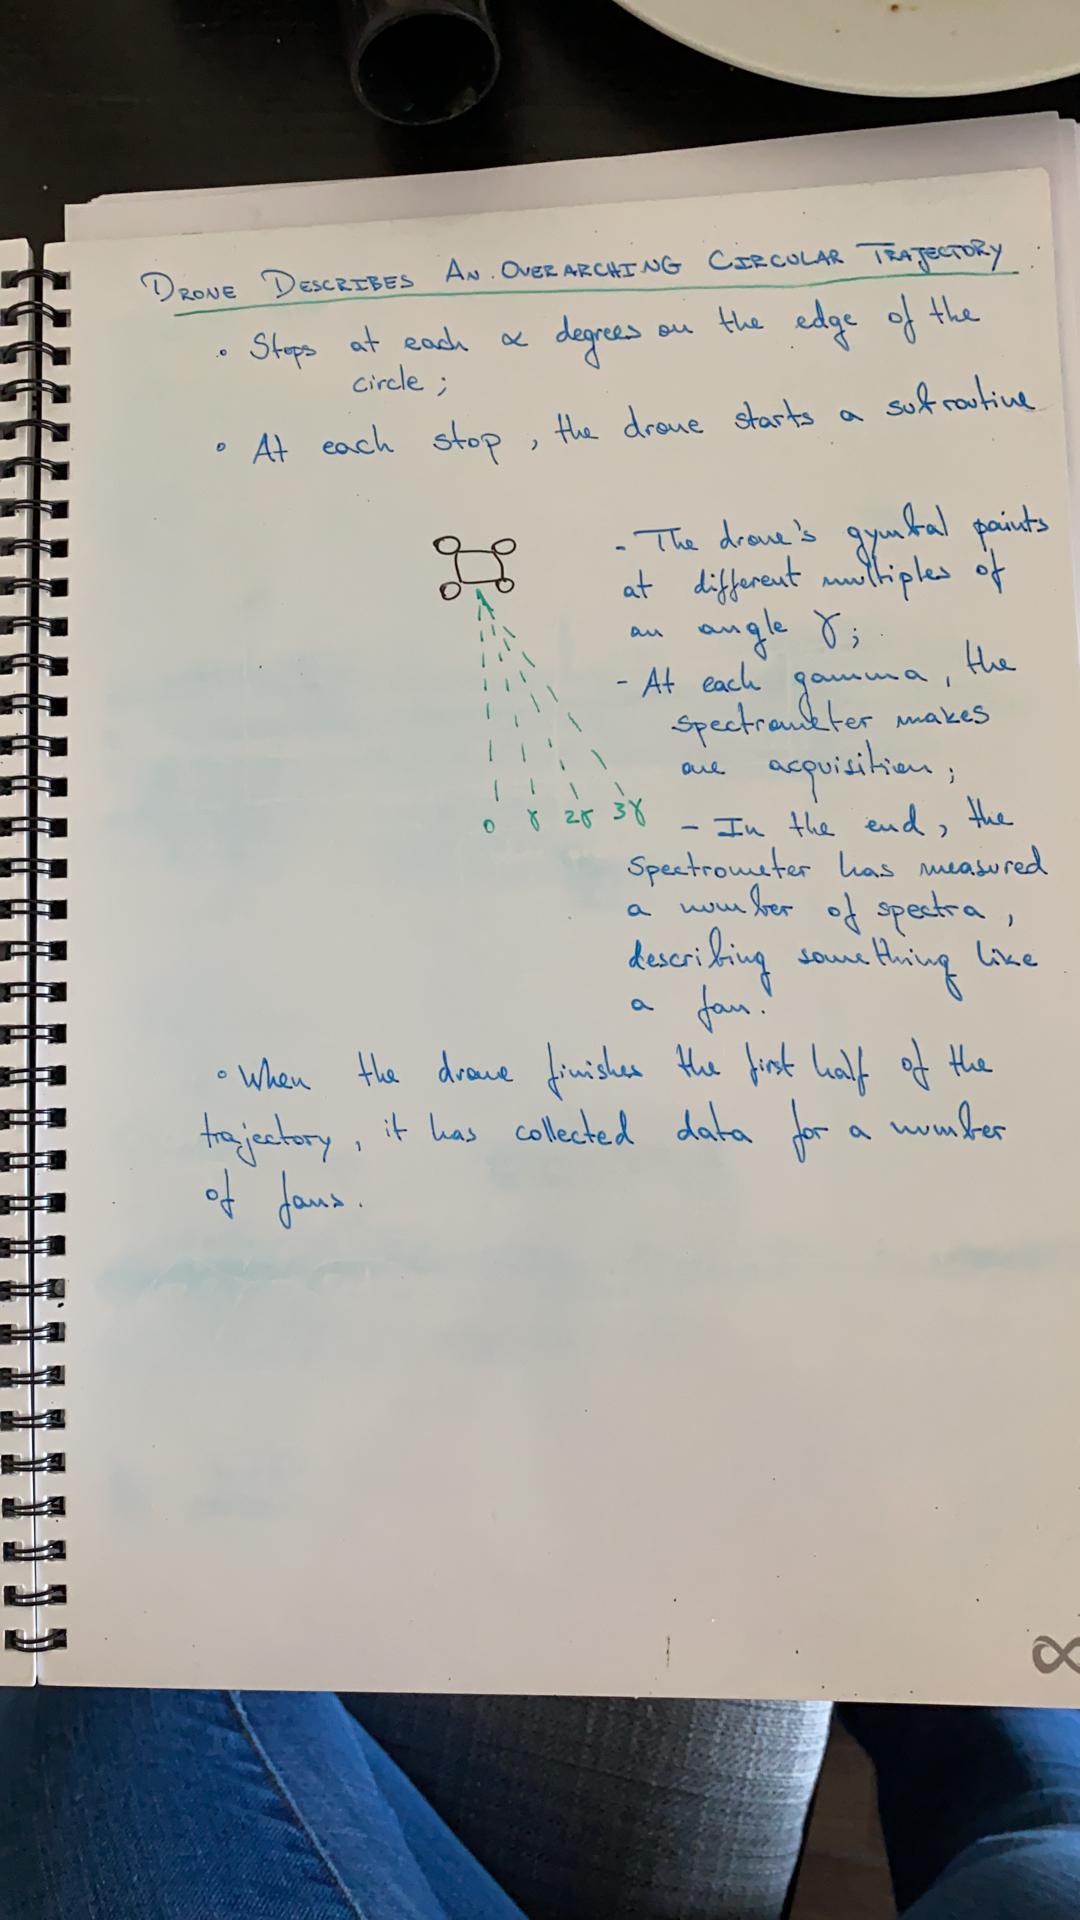 DRONE DESCRIBES AN OVERARCHING CIRCULAR TRAJECTORY
• Stops at each α degrees on the edge of the
circle;
• At each stop, the drone starts a subroutine
- The drone's gymbal points
at different multiples of
an angle γ;
- At each gamma, the
spectrometer makes
one acquisition;
0 γ 2γ 3γ
- In the end, the
spectrometer has measured
a number of spectra,
describing something like
a fan.
• When the drone finishes the first half of the
trajectory, it has collected data for a number
of fans.